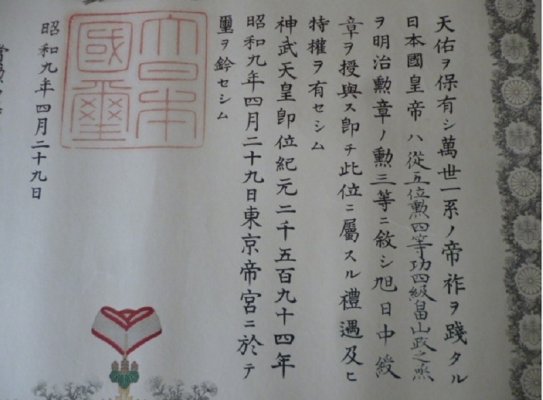 天佑ヲ保有シ萬世一系ノ帝祚ヲ踐タル
日本國皇帝ハ從五位勲四等功四級畠山政之
ヲ明治勲章ノ勲三等ニ敘シ旭日中綬
章ヲ授與ス即チ此位ニ屬スル禮遇及ヒ
特權ヲ有セシム
神武天皇即位紀元二千五百九十四年
昭和九年四月二十九日東京帝宮ニ於テ
璽ヲ鈐セシム
大日本
國璽
昭和九年四月二十九日